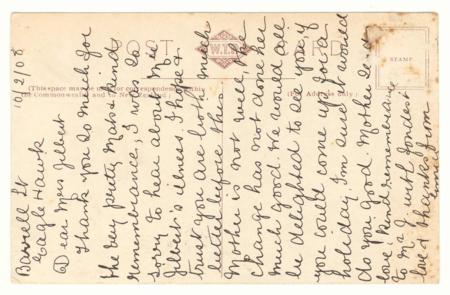 POST CARD
W.T.P.
(This space may be used for correspondence in
the Commonwealth and to New Zealand.)
(For Address only.)
STAMP
10/2/08
Barrell St
Eagle Hawk
Dear Mrs Gilbert
Thank you so much for
the very pretty Mats & kind
remembrance, I was so
sorry to hear about Mr
Gilbert's illness. I hope &
trust you are both much
better before this.
Mother is not well, the
change has not done her
much good. We would all
be delighted to see you if
you could come up for a
holiday. I'm sure it would
do you good. Mother sends
love & kind remembrance
to Mr G with fondest
love & thanks from